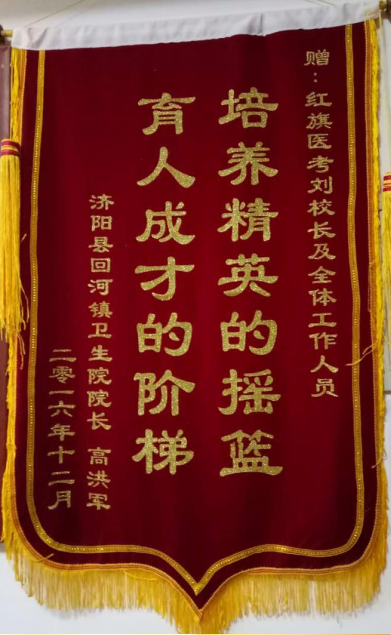 赠：红旗医考刘校长及全体工作人员
培养精英的摇篮
育人成才的阶梯
济阳县回河镇卫生院院长 高洪军
二零一六年十二月